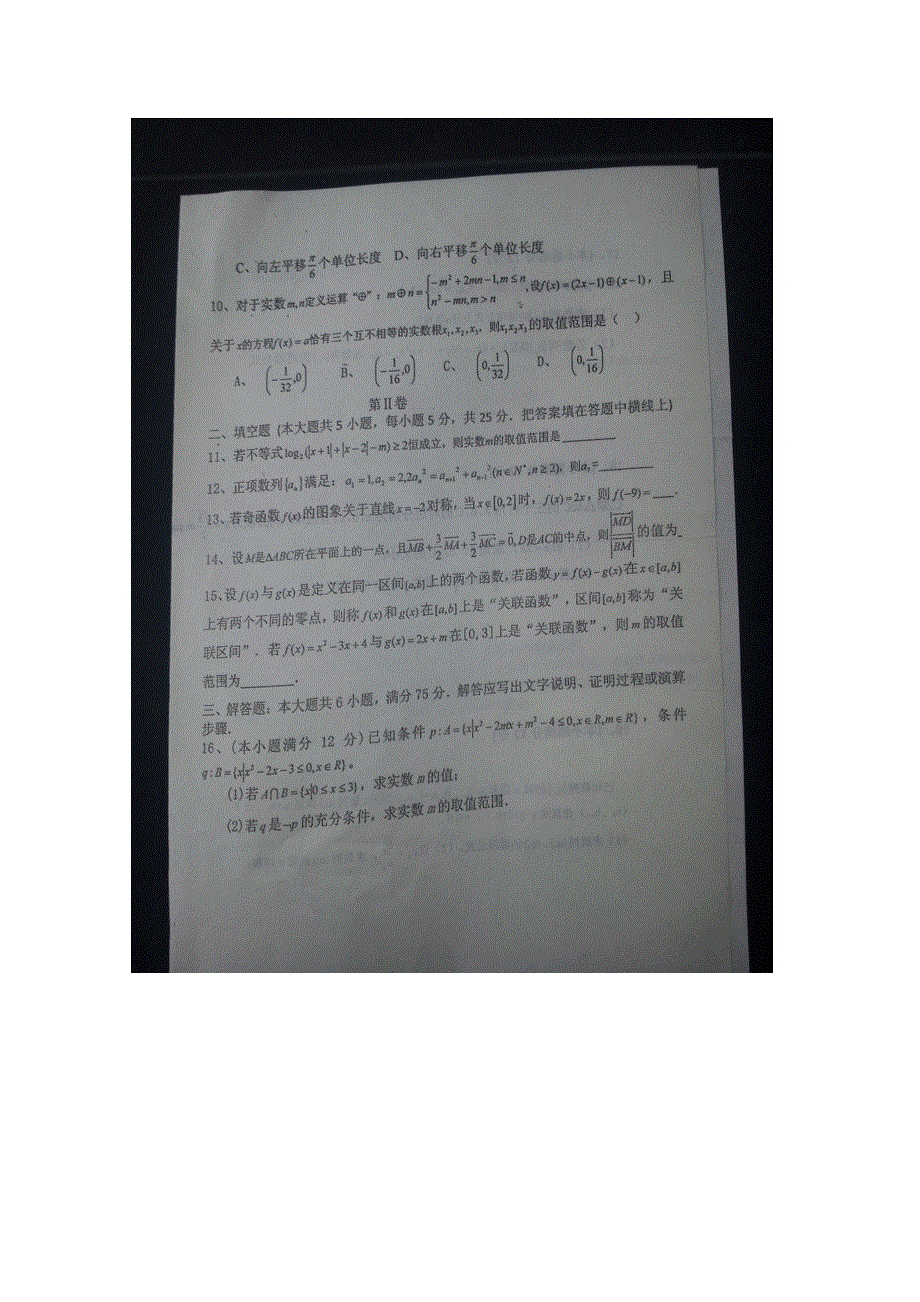 C、向左平移π/6个单位长度 D、向右平移π/6个单位长度
10、对于实数m,n定义运算“⊕”：m⊕n={−m²+2mn−1,m≤n; n²−mn,m>n},设f(x)=(2x−1)⊕(x−1)，且
关于x的方程f(x)=a恰有三个互不相等的实数根x₁,x₂,x₃，则x₁x₂x₃的取值范围是（ ）
A、(−1/32,0) B、(−1/16,0) C、(0,1/32) D、(0,1/16)
第Ⅱ卷
二、填空题 (本大题共5小题，每小题5分，共25分．把答案填在答题中横线上)
11、若不等式log₂(|x+1|+|x−2|−m)≥2恒成立，则实数m的取值范围是________
12、正项数列{aₙ}满足：a₁=1,a₂=2,2aₙ²=aₙ₊₁²+aₙ₋₁²(n∈N*,n≥2)，则a₇=________
13、若奇函数f(x)的图象关于直线x=−2对称，当x∈[0,2]时，f(x)=2x，则f(−9)=___．
14、设M是ΔABC所在平面上的一点，且MB+3/2MA+3/2MC=0,D是AC的中点，则|MD|/|BM|的值为_
15、设f(x)与g(x)是定义在同一区间[a,b]上的两个函数,若函数y=f(x)−g(x)在x∈[a,b]
上有两个不同的零点，则称f(x)和g(x)在[a,b]上是“关联函数”，区间[a,b]称为“关
联区间”．若f(x)=x²−3x+4与g(x)=2x+m在[0,3]上是“关联函数”，则m的取值
范围为________．
三、解答题：本大题共6小题，满分75分．解答应写出文字说明、证明过程或演算
步骤．
16、(本小题满分 12 分)已知条件p:A={x|x²−2mx+m²−4≤0,x∈R,m∈R}，条件
q:B={x|x²−2x−3≤0,x∈R}。
(1)若A∩B={x|0≤x≤3}，求实数m的值；
(2)若q是¬p的充分条件，求实数m的取值范围．